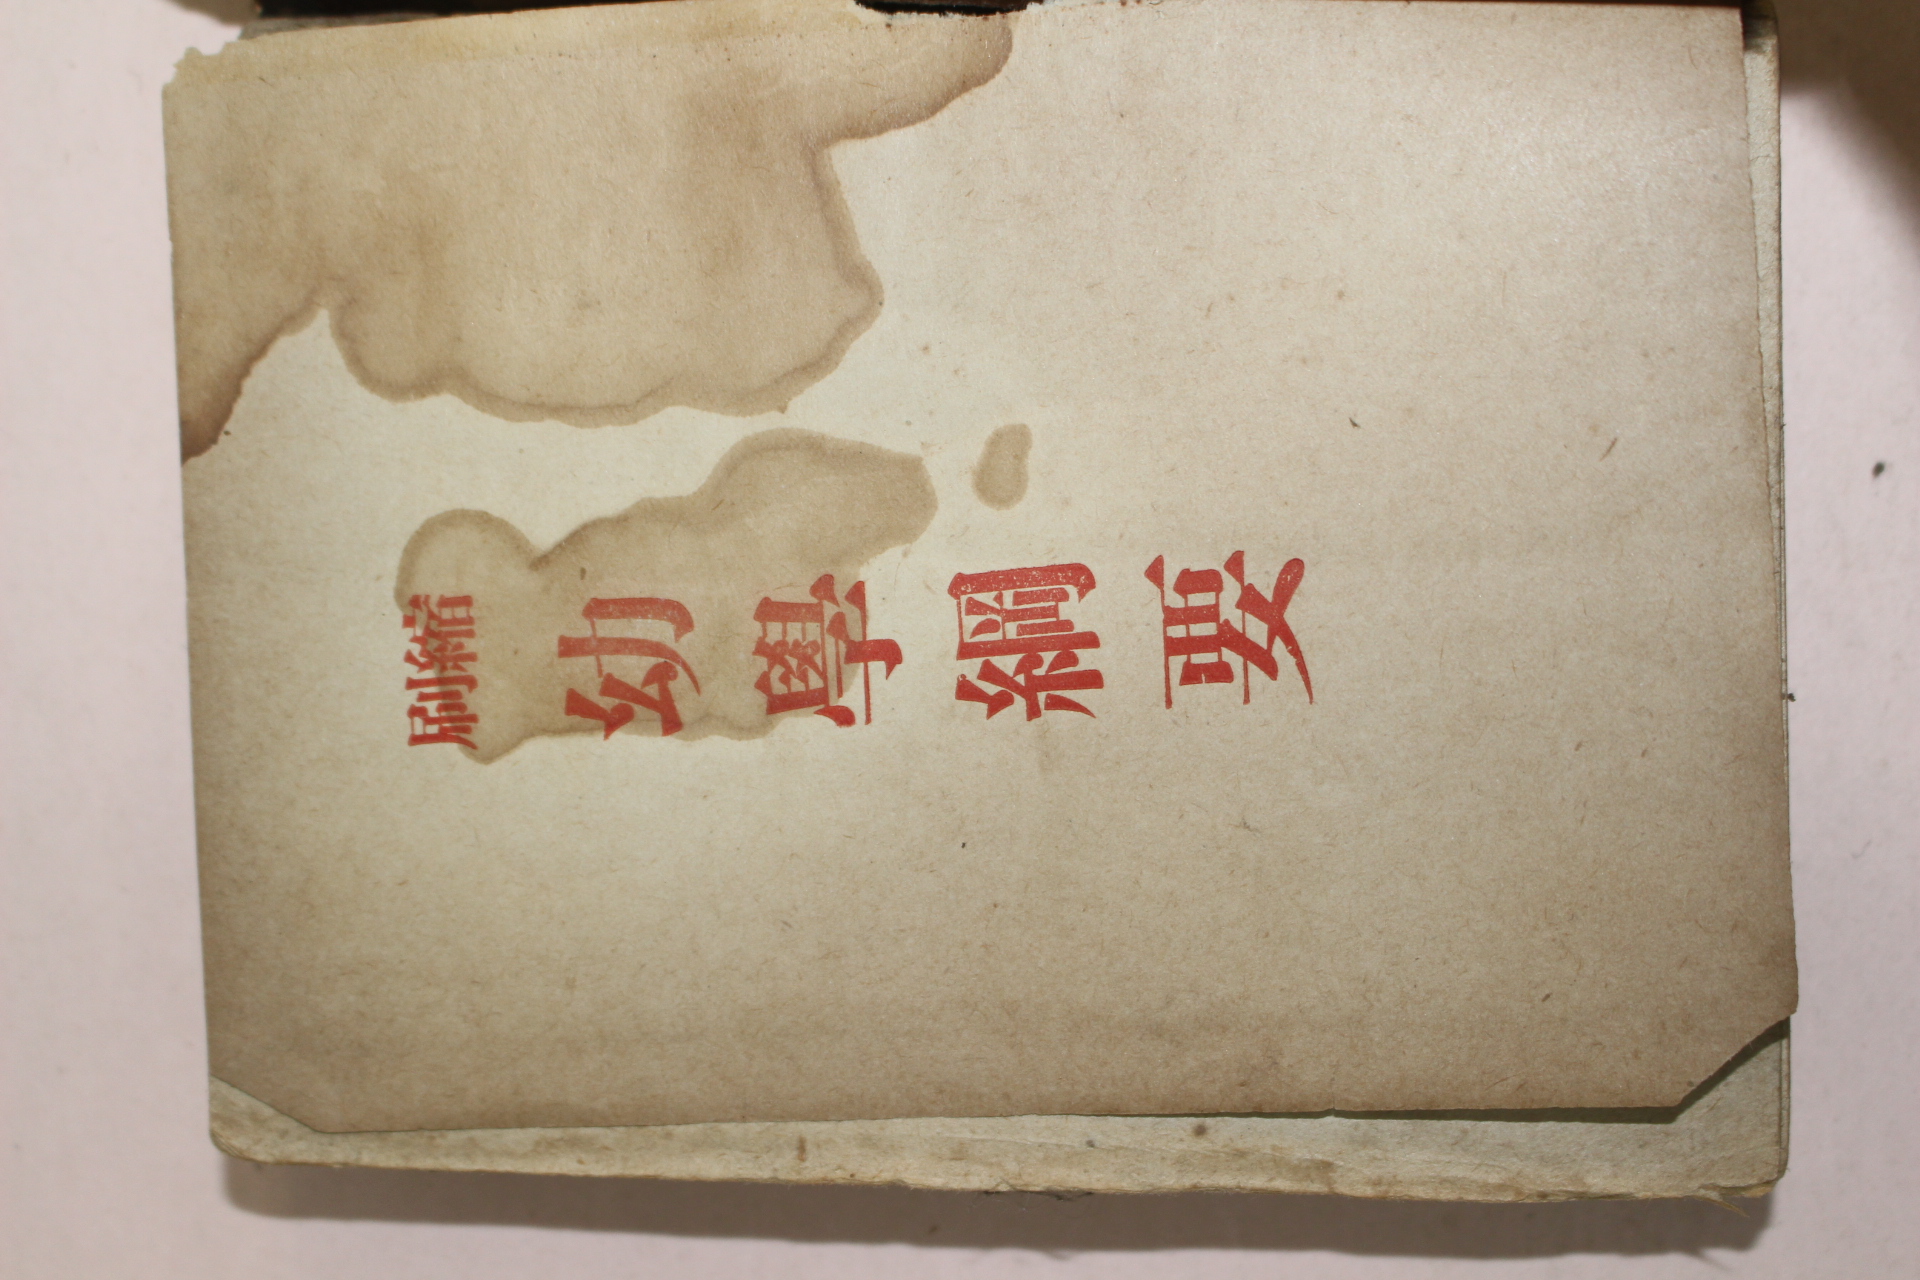 縮刷
幼學綱要